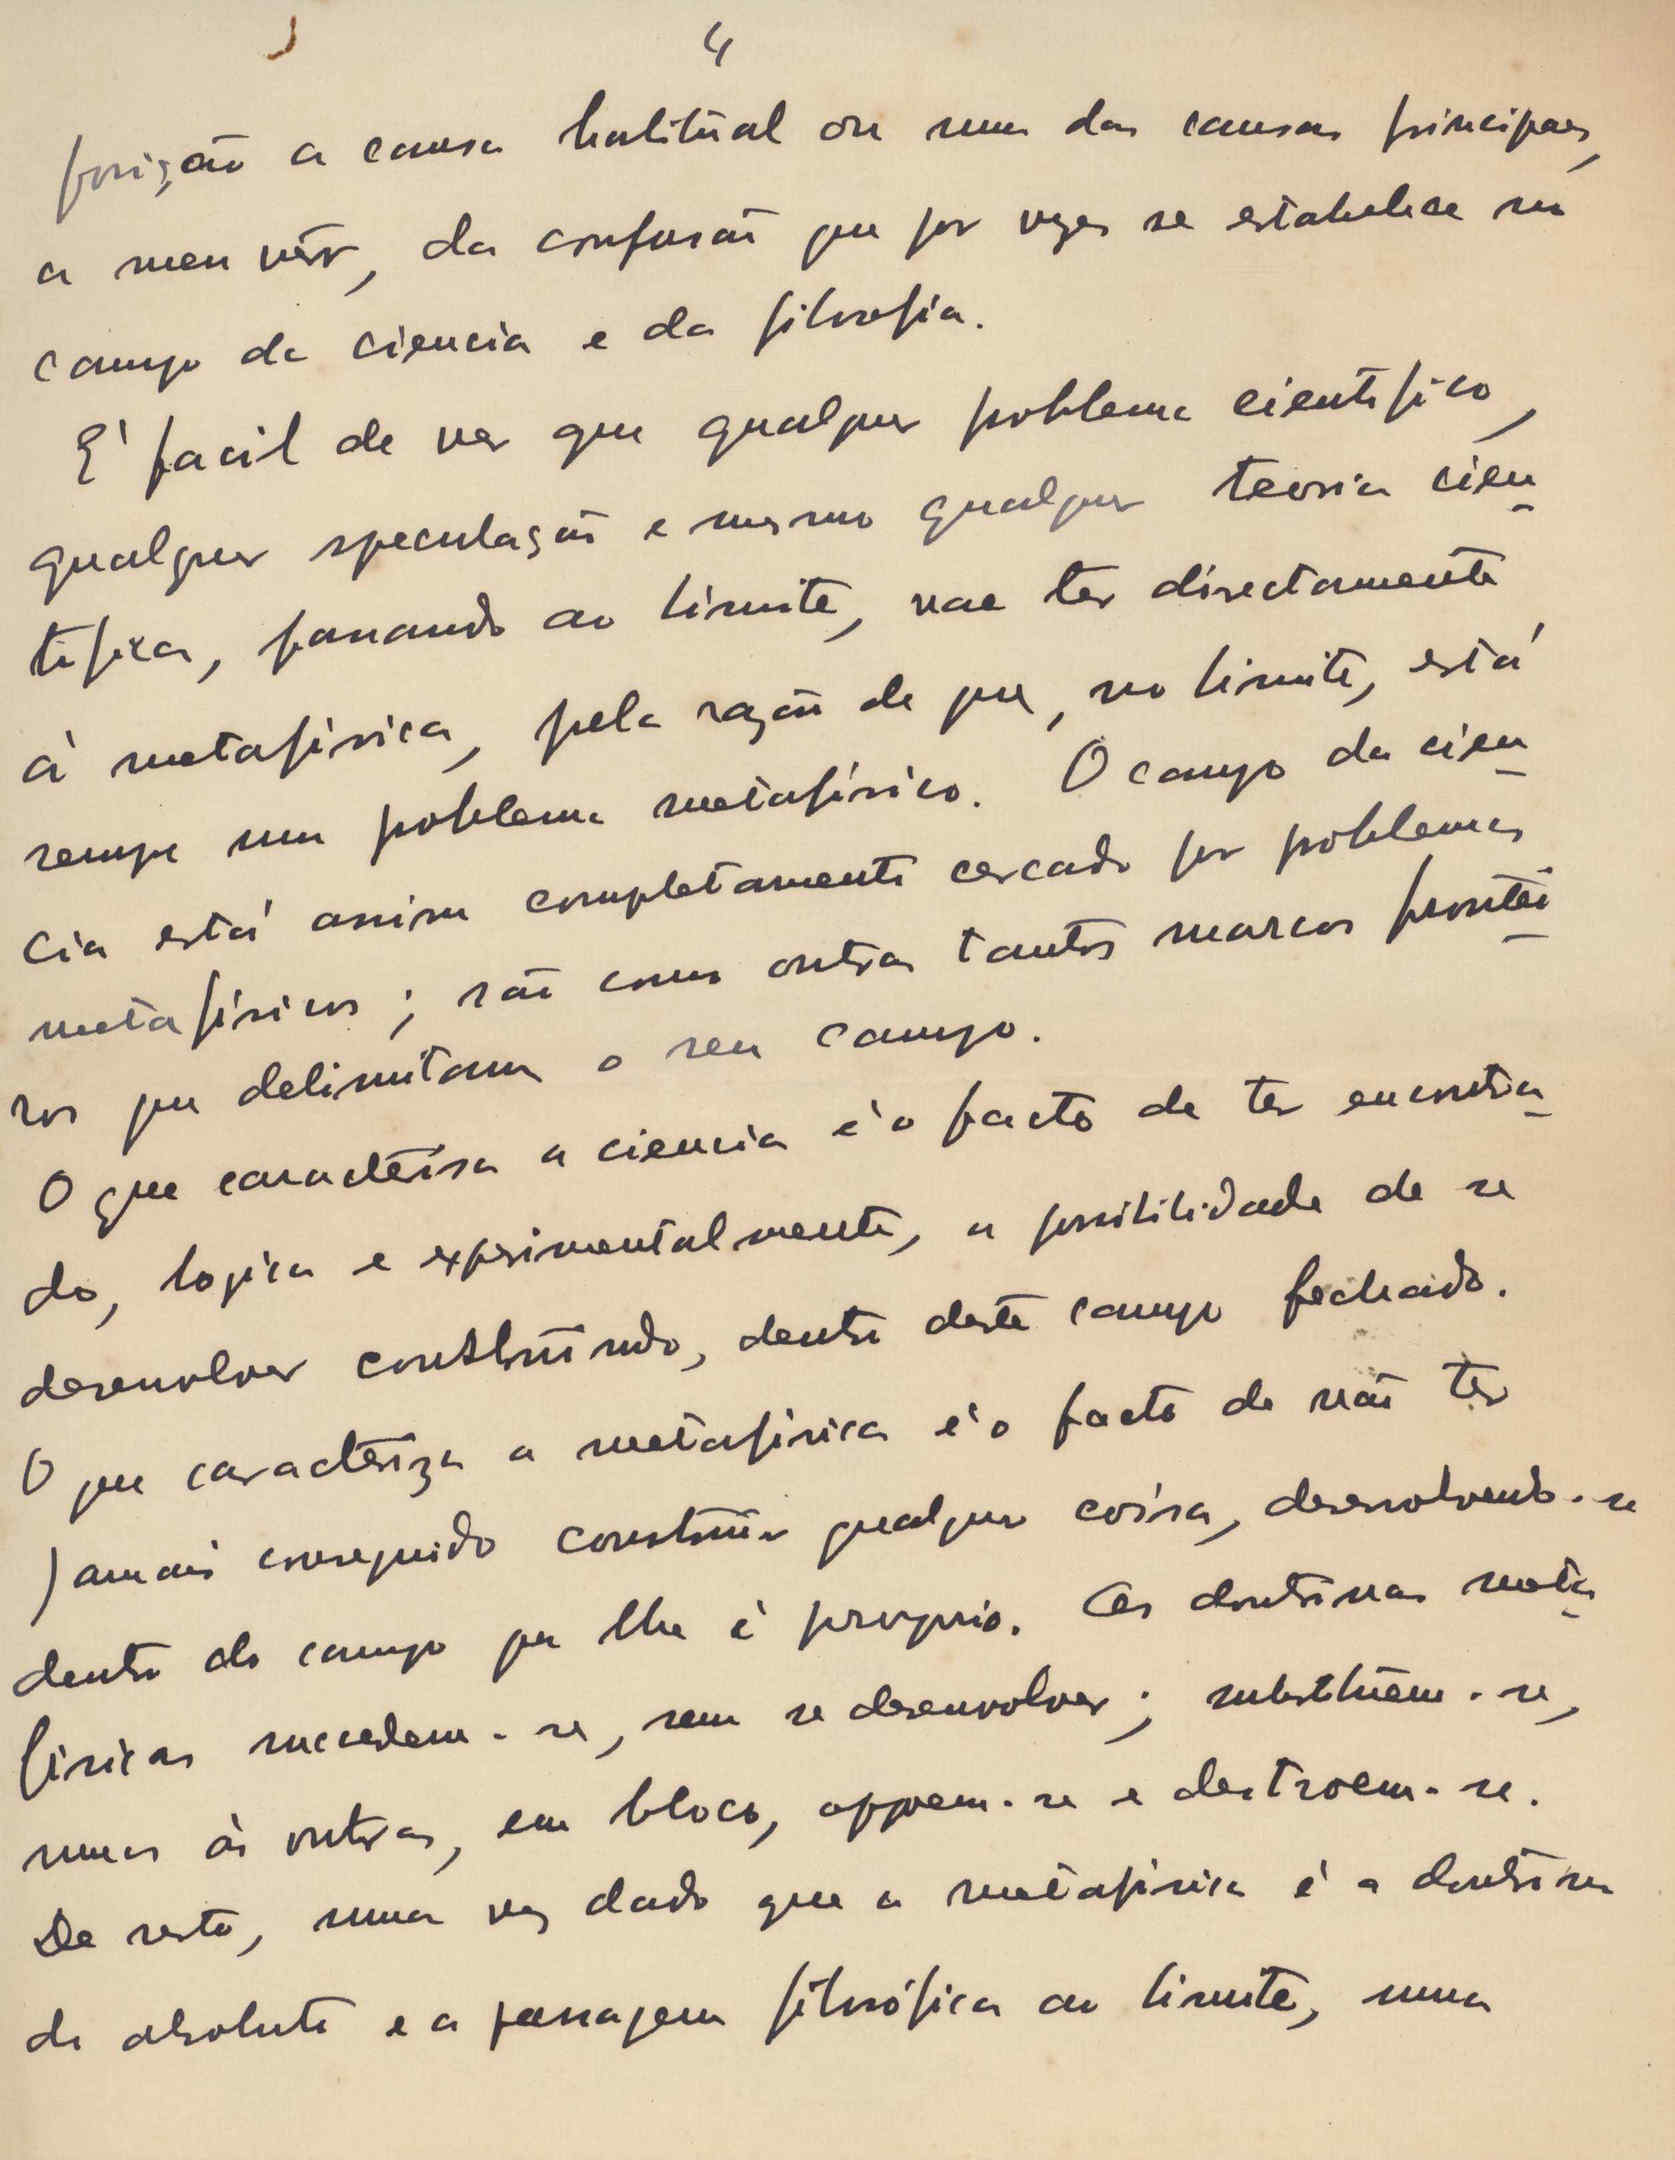 4
posição a causa habitual ou uma das causas principaes,
a meu vêr, da confusão que por vezes se estabelece no
campo da ciencia e da filosofia.
E' facil de ver que qualquer problema cientifico,
qualquer speculação e mesmo qualquer teoria cien-
tifica, passando ao limite, vae ter directamente
á metafísica, pela razão de que, no limite, está
sempre um problema metafísico. O campo da cien-
cia está assim completamente cercado por problemas
metafísicos; são como outros tantos marcos frontei-
ros que delimitam o seu campo.
O que caracterisa a ciencia é o facto de ter encontra-
do, logica e experimentalmente, a possibilidade de se
desenvolver construindo, dentro deste campo fechado.
O que caracteriza a metafísica é o facto de não ter
jamais conseguido construir qualquer coisa, desenvolvendo-se
dentro do campo que lhe é proprio. As doutrinas meta-
físicas sucedem-se, sem se desenvolver; substituem-se,
umas ás outras, em bloco, oppoem-se e destroem-se.
De resto, uma vez dado que a metafísica é a doutrina
do absoluto e a passagem filosófica ao limite, uma